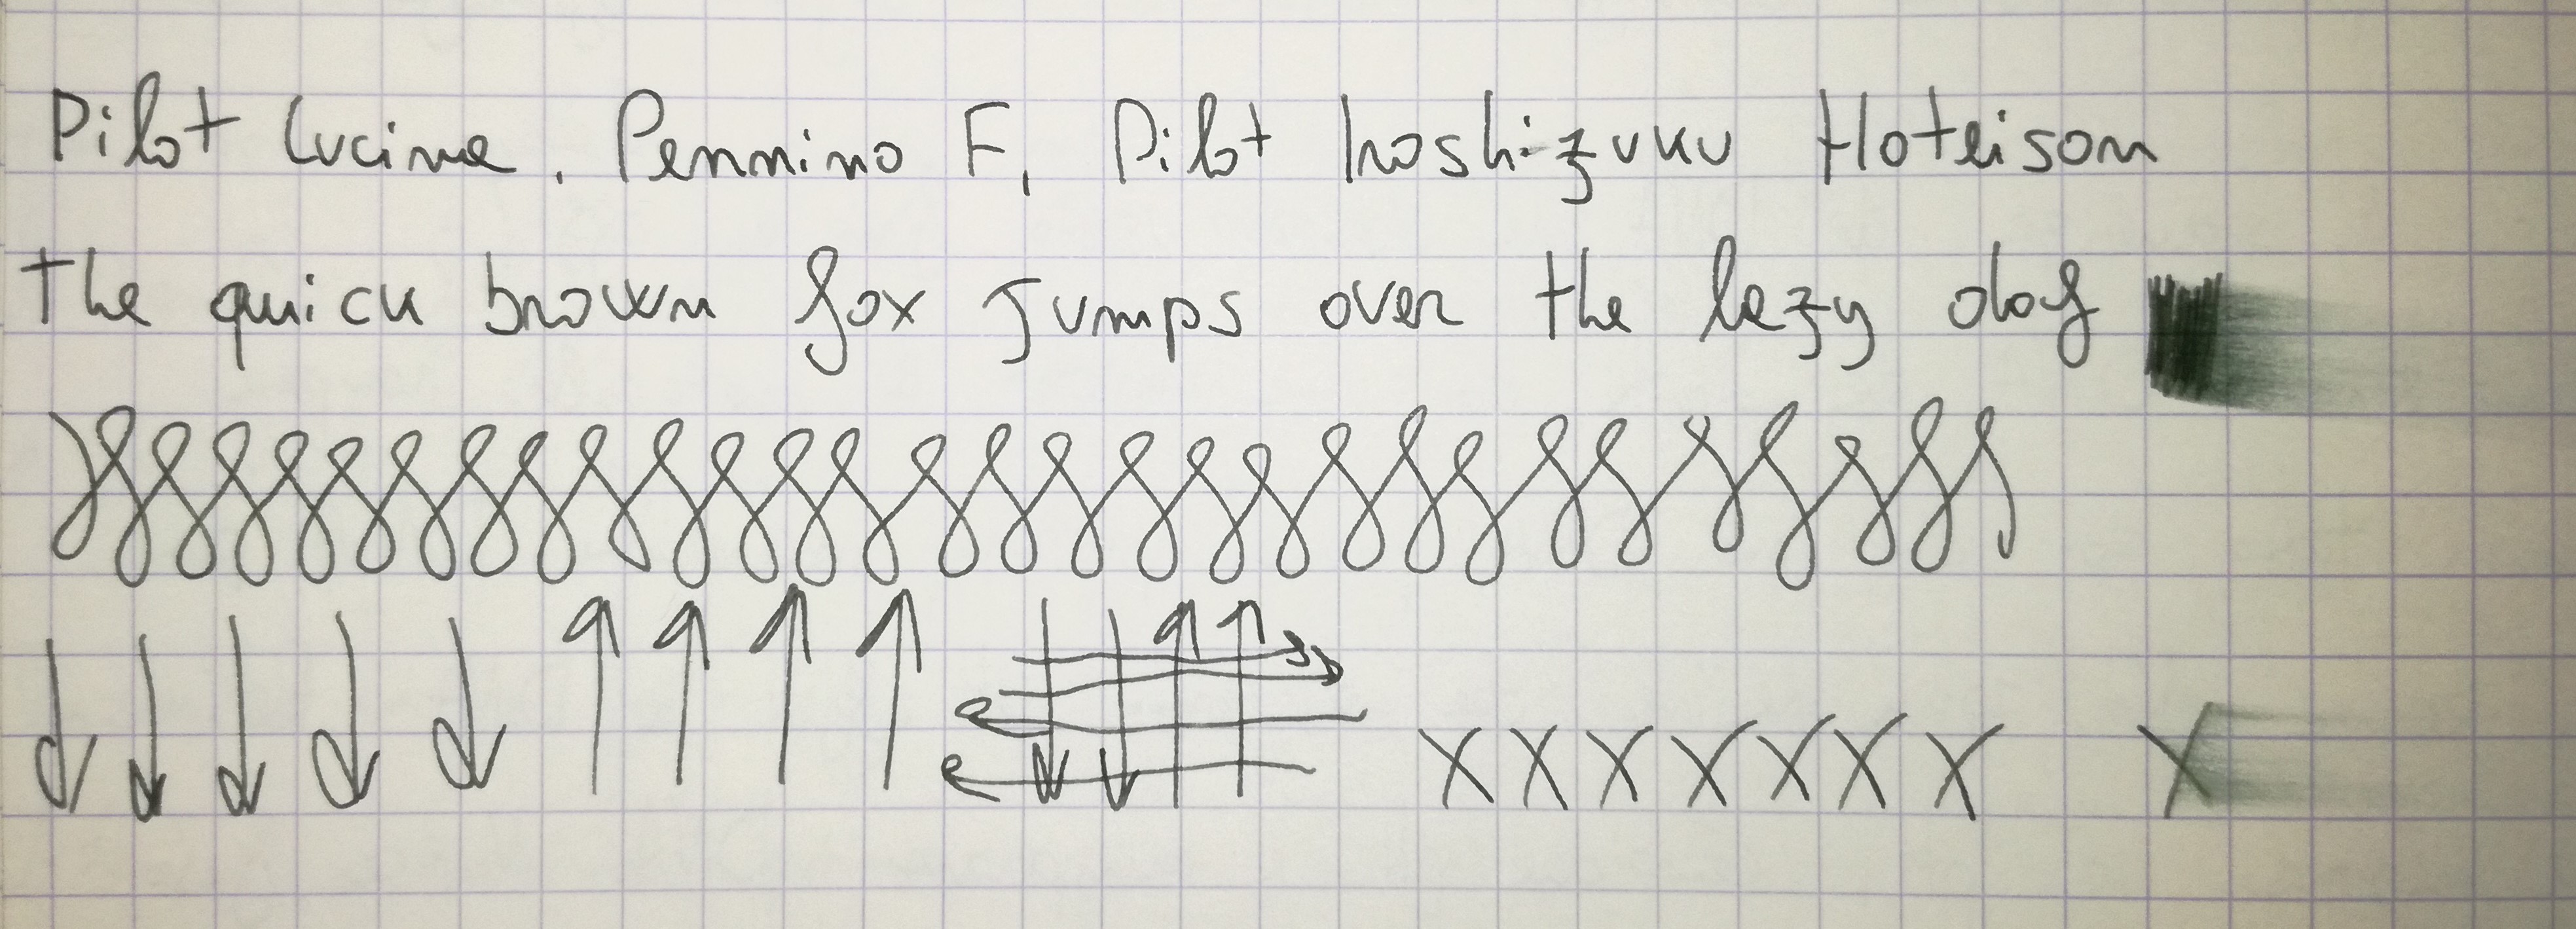 Pilot Lucina, Pennino F, Pilot Iroshizuku Hoteison
The quick brown fox jumps over the lazy dog
x x x x x x x x